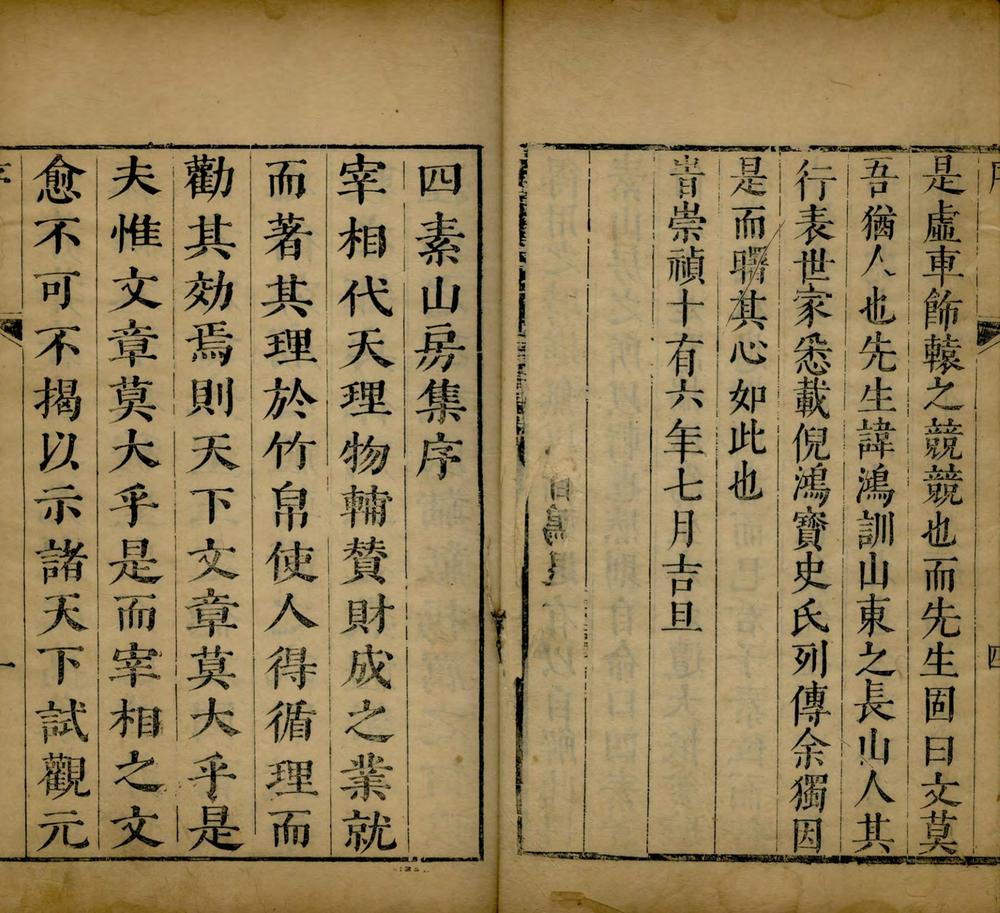 是虛車飾轅之競競也而先生固曰文莫
吾猶人也先生諱鴻訓山東之長山人其
行表世家悉載倪鴻寶史氏列傳余獨因
是而曙其心如此也
旹崇禎十有六年七月吉旦
四素山房集序
宰相代天理物輔贊財成之業就
而著其理於竹帛使人得循理而
勸其効焉則天下文章莫大乎是
夫惟文章莫大乎是而宰相之文
愈不可不揭以示諸天下試觀元
序
一